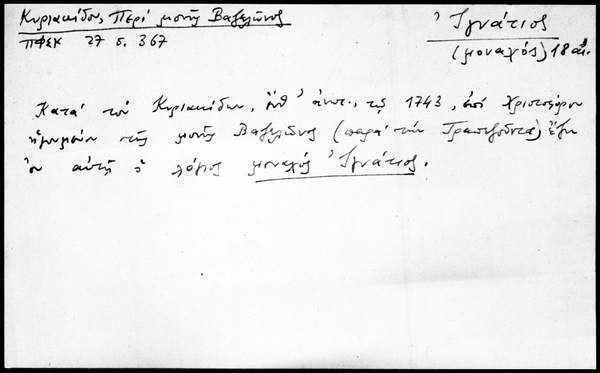 Κυριακίδου, Περί μονῆς Βαζελῶνος
ΠΦΣΚ 27 σ. 367
Ἰγνάτιος
(μοναχός) 18 αἰ.
Κατά τόν Κυριακίδην, ἔνθ' ἀνωτ., τῷ 1743, ἐπί Χριστοφόρου
ἡγουμένου τῆς μονῆς Βαζελῶνος (παρά τήν Τραπεζοῦντα) ἔζη
ἐν αὐτῇ ὁ λόγιος μοναχός Ἰγνάτιος.